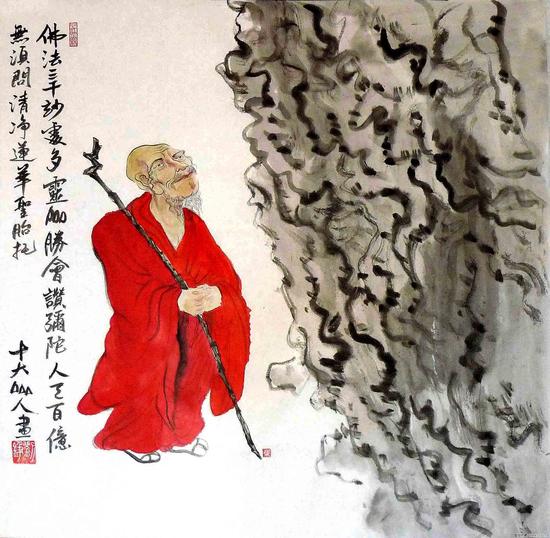 佛法三千妙處多靈山勝會讚彌陀人天百億
無須問清淨蓮華聖胎托
十大山人畫